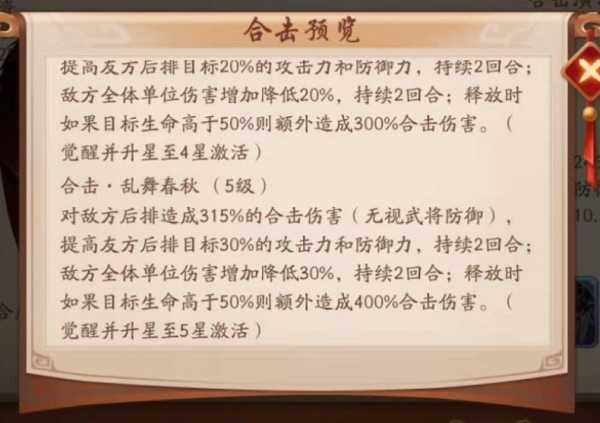 合击预览
提高友方后排目标20%的攻击力和防御力，持续2回合；
敌方全体单位伤害增加降低20%，持续2回合；释放时
如果目标生命高于50%则额外造成300%合击伤害。（
觉醒并升星至4星激活）
合击·乱舞春秋（5级）
对敌方后排造成315%的合击伤害（无视武将防御），
提高友方后排目标30%的攻击力和防御力，持续2回合；
敌方全体单位伤害增加降低30%，持续2回合；释放时
如果目标生命高于50%则额外造成400%合击伤害。（
觉醒并升星至5星激活）